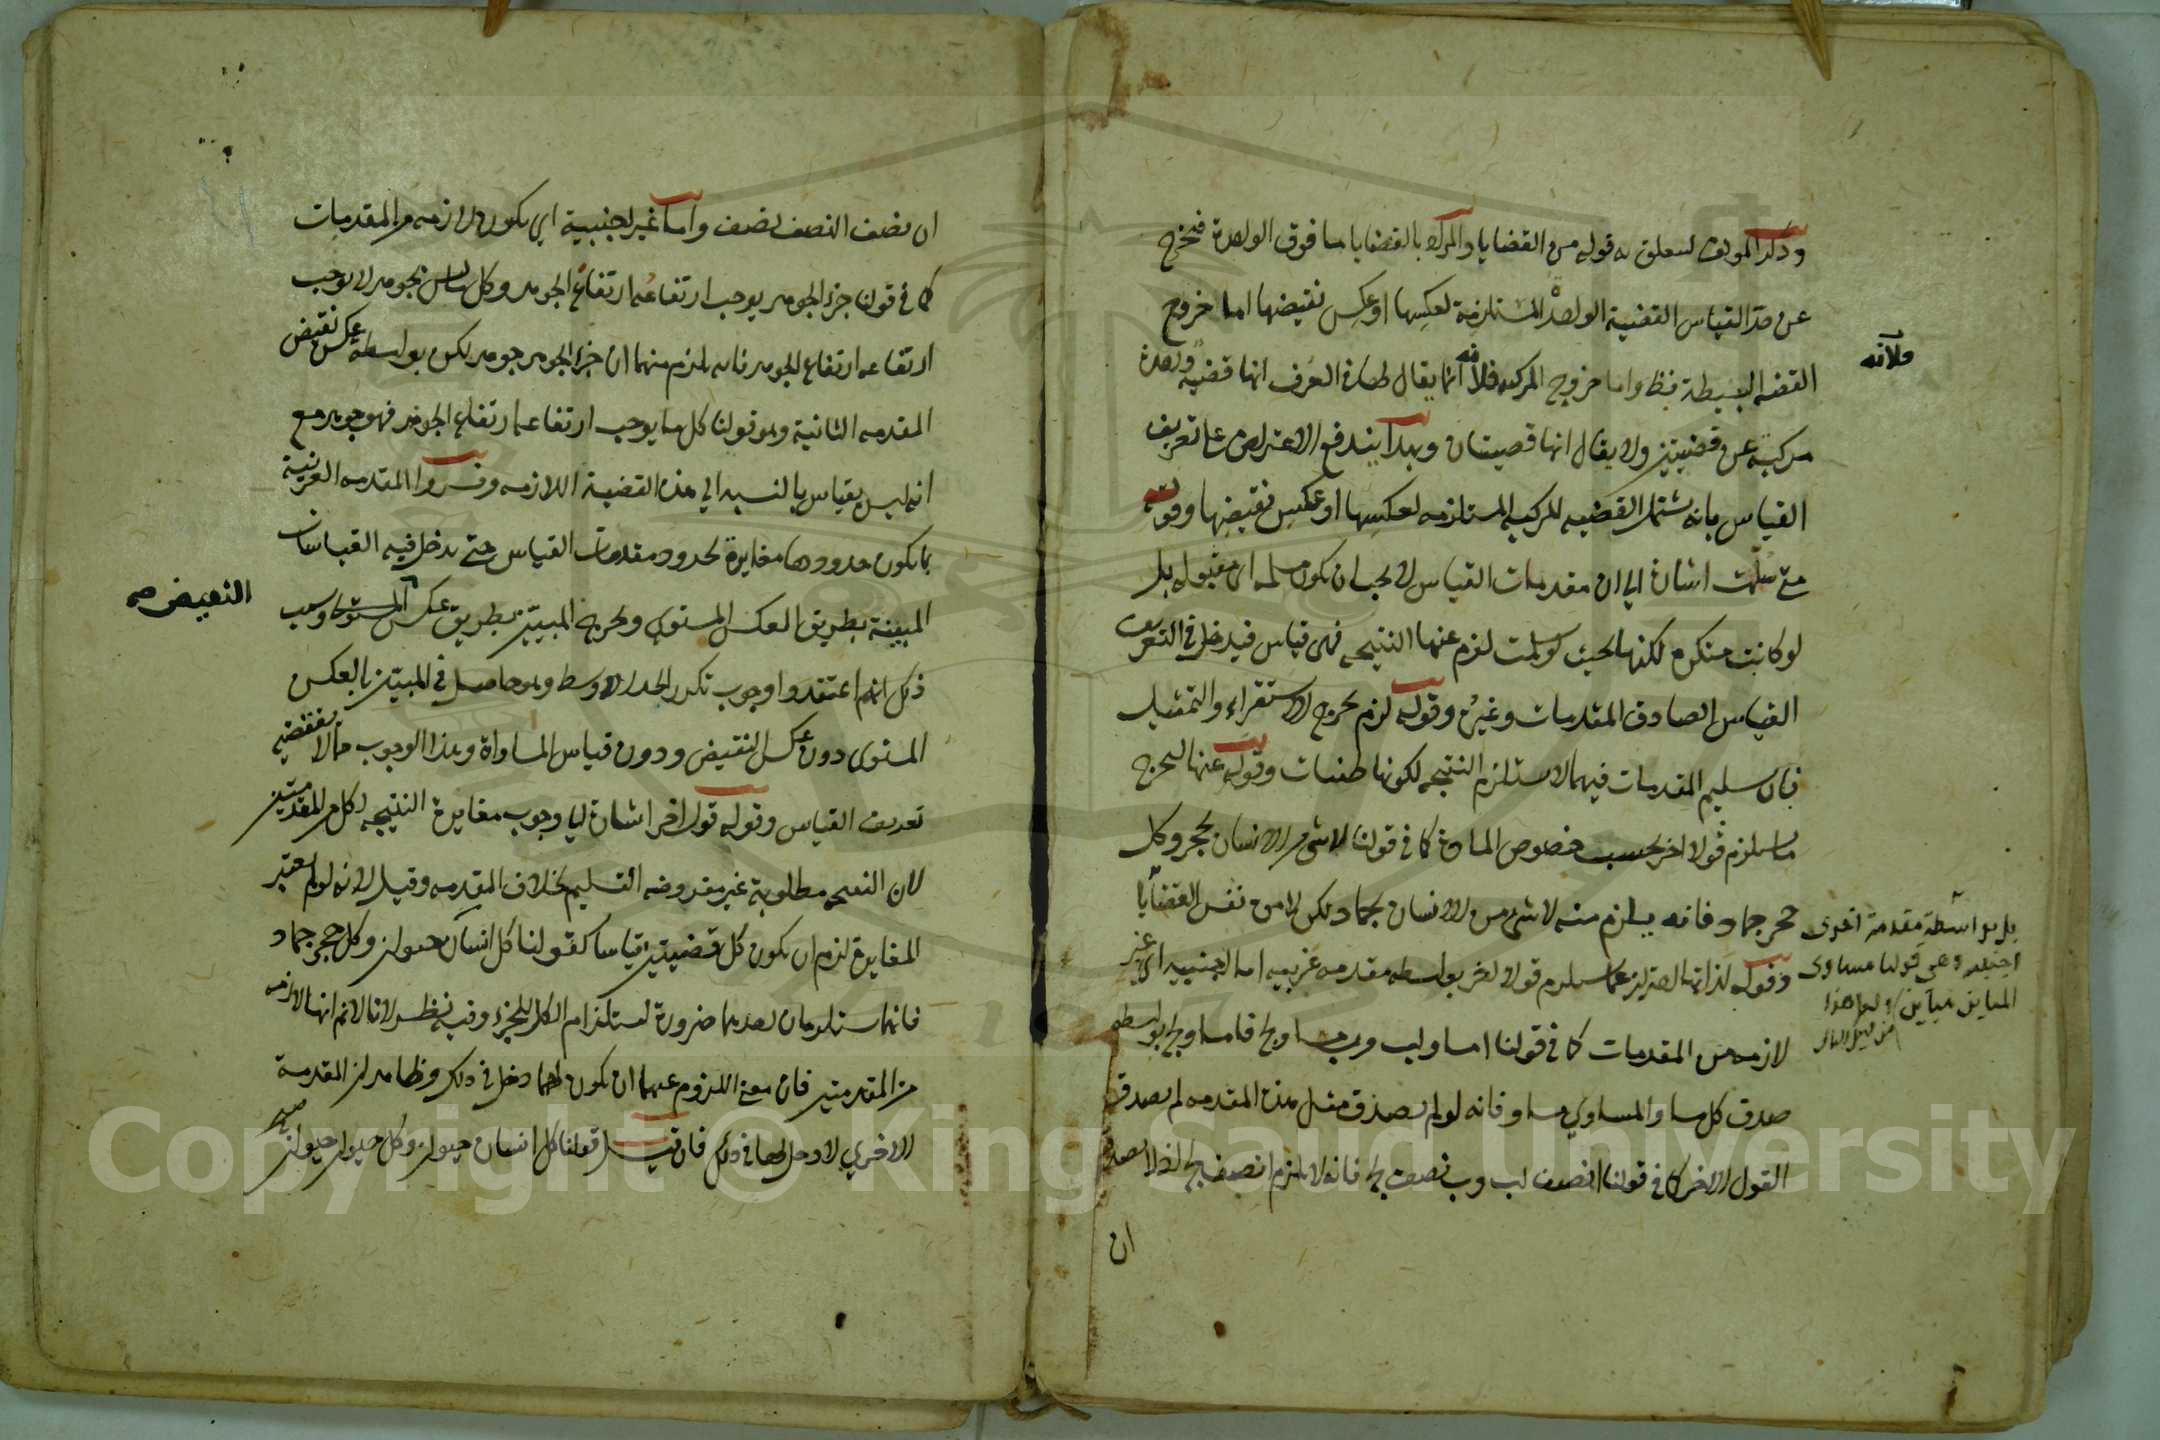 وذكر المؤلف لتعلق به قوله من القضايا والمراد بالقضايا ما فوق الواحدة فتخرج
عن حد القياس القضية الواحدة المستلزمة لعكسها او عكس نقيضها اما خروج
القضية البسيطة فظ واما خروج المركبه فلانه انما يقال لها في العرف انها قضية واحدة
فلانه
مركبة عن قضيتين ولا يقال انها قضيتان وبهذا يندفع الاعتراض على تعريف
القياس بانه يشتمل القضيه المركبه المستلزمه لعكسها او عكس نقيضها وقوله
متى سلمت اشارة الى ان مقدمات القياس لا يجب ان يكون مسلمه اى مقبوله بل
لو كانت منكرة لكنها بحيث لو سلمت لزم عنها النتيجه فهى قياس فيدخل فى التعريف
القياس الصادق المقدمات وغيره وقوله لزم يخرج الاستقراء والتمثيل
فان تسليم المقدمات فيهما لا يستلزم النتيجه لكونها ظنيات وقوله عنها ليخرج
ما يلزم قولا اخر بحسب خصوص المادة كما فى قولنا لا شئ من الانسان بحجر وكل
حجر جماد فانه يلزم منه لا شئ من الانسان بجماد لكن لا من نفس القضايا
بل بواسطة مقدمة اخرى
اجنبيه وهى قولنا مساوى
المباين مباين
وقوله لذاتها احتراز عما يلزم قولا اخر بواسطه مقدمه غريبه اما اجنبيه اى غير
لازمه من المقدمات كما فى قولنا ا مساو لب وب مساو لج فا مساو لج بواسطه
صدق كل مساو المساوي مساو فانه لو لم يصدق مثل هذه المقدمه لم يصدق
القول الاخر كما فى قولنا ا نصف لب وب نصف لج فانه لا يلزم ا نصف لج اذ لا يصدق
ان
ان نصف النصف نصف واما غير اجنبية اي يكون لازمه من المقدمات
كما فى قولنا جزء الجوهر يوجب ارتفاعه ارتفاع الجوهر وكل ما ليس بجوهر لا يوجب
ارتفاعه ارتفاع الجوهر فانه يلزم منهما ان جزء الجوهر جوهر لكن بواسطة عكس نقيض
المقدمه الثانية وهو قولنا كل ما يوجب ارتفاعه ارتفاع الجوهر فهو جوهر مع
انه ليس بقياس بالنسبه الي هذه القضية اللازمه وفسروا المقدمه الغريبة
بما يكون حدودها مغايرة لحدود مقدمات القياس حتى يدخل فيه القياسات
المبينة بطريق العكس المستوي ويخرج المبين بطريق عكس المستوى وسبب
النقيض صح
ذلك انهم اعتقدوا وجوب تكرر الحد الاوسط وهو حاصل فى المبين بالعكس
المستوى دون عكس النقيض ودون قياس المساواة وهذا الوجوب مما لا يقتضيه
تعريف القياس وقوله قول اخر اشارة الى وجوب مغايرة النتيجه لكل من المقدمتين
لان النتيجه مطلوبة غير مفروضه التسليم بخلاف المقدمه وقيل لانه لو لم يعتبر
المغايرة لزم ان يكون كل قضيتين قياسا كقولنا كل انسان حيوان وكل حجر جماد
فانهما يستلزمان احدهما ضرورة استلزام الكل للجزء وفيه نظر لانا لا نم انها لازمه
من المقدمتين فان معنى اللزوم عنهما ان يكون لهما دخل فى ذلك وظاهر ان المقدمة
الاخري لا دخل لها فى ذلك فان قيل قولنا كل انسان حيوان وكل حيوان حيوان
Copyright © King Saud University